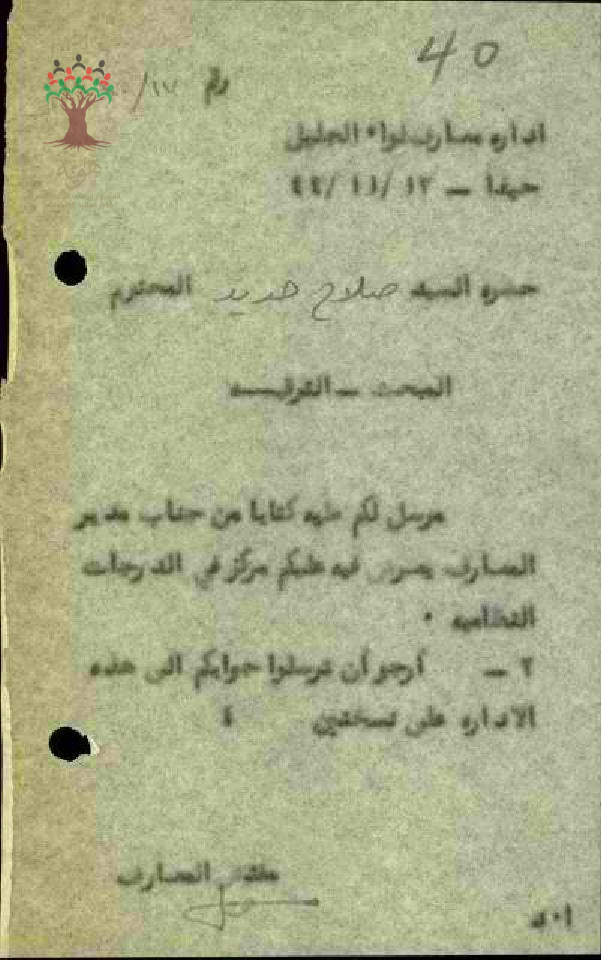 40
رقم /١٧
اداره معارف لواء الجليل
حيفا — ١٢ /١١ /٤٤
حضره السيد صلاح حديد المحترم
المبحث — الترفيـه
مرسل لكم طيه كتابا من جناب مدير
المعارف يعرض فيه عليكم مركز في الدرجات
النظاميه ٠
٢ — أرجو أن ترسلوا جوابكم الى هذه
الاداره على نسختين ٤
مفتش المعارف
هوية